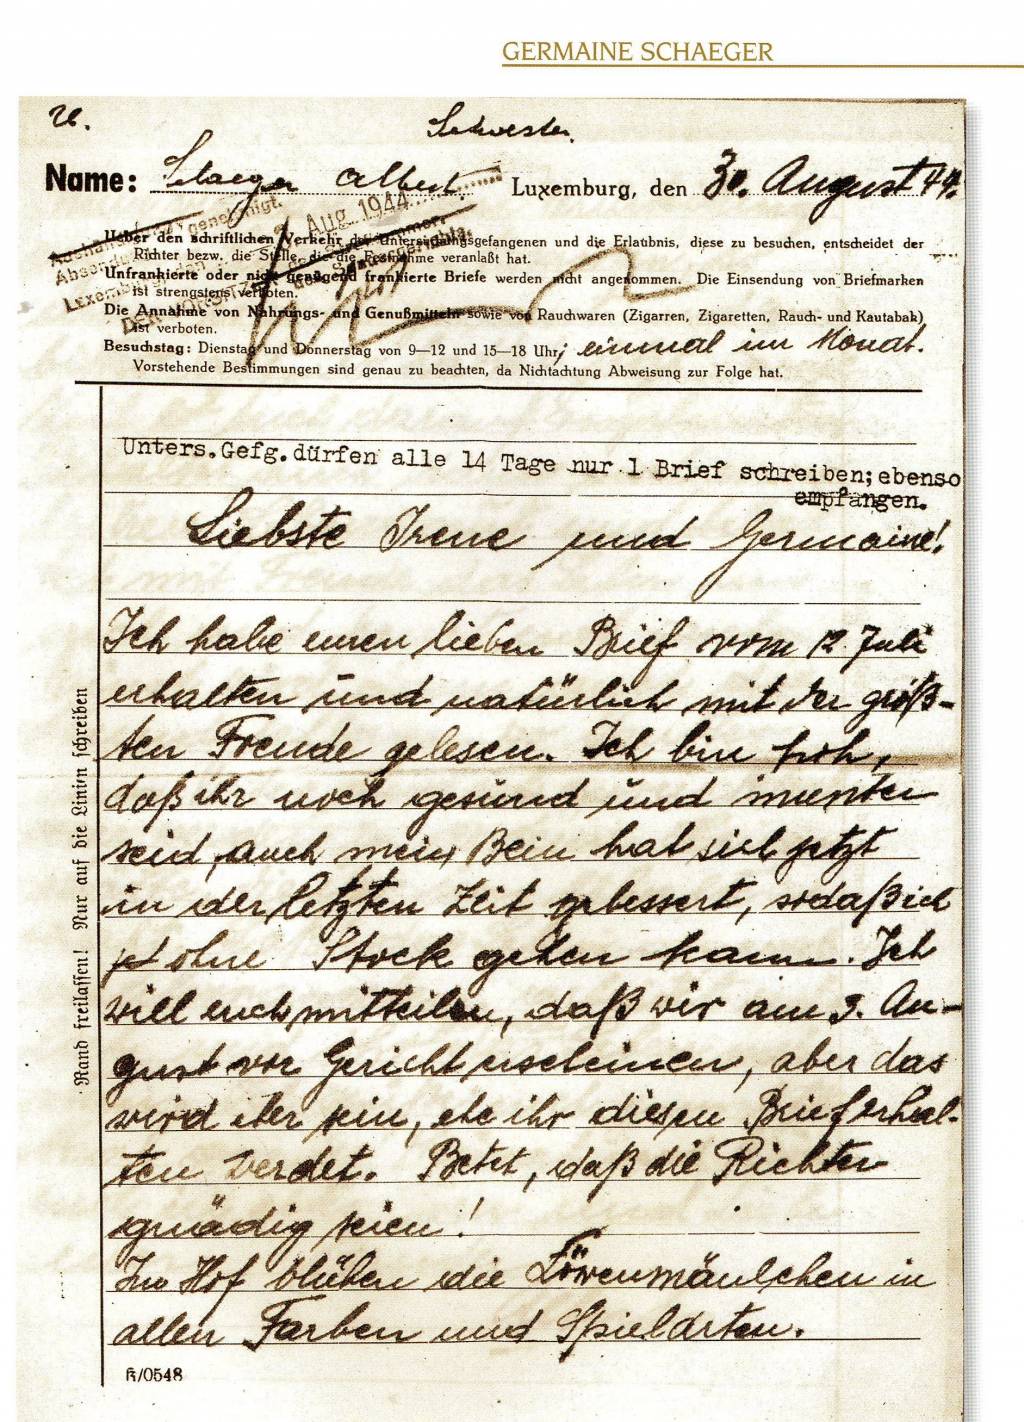 GERMAINE SCHAEGER
Schwester.
Name: Schaeger Albert Luxemburg, den 30. August 44.
genehmigt.
Aug. 1944
Ueber den schriftlichen Verkehr der Untersuchungsgefangenen und die Erlaubnis, diese zu besuchen, entscheidet der
Richter bezw. die Stelle, die die Festnahme veranlaßt hat.
Unfrankierte oder nicht genügend frankierte Briefe werden nicht angenommen. Die Einsendung von Briefmarken
ist strengstens verboten.
Die Annahme von Nahrungs- und Genußmitteln sowie von Rauchwaren (Zigarren, Zigaretten, Rauch- und Kautabak)
ist verboten.
Besuchstag: Dienstag und Donnerstag von 9—12 und 15—18 Uhr; einmal im Monat.
Vorstehende Bestimmungen sind genau zu beachten, da Nichtachtung Abweisung zur Folge hat.
Unters.Gefg.dürfen alle 14 Tage nur 1 Brief schreiben; ebenso
empfangen.
Liebste Irene und Germaine!
Ich habe euren lieben Brief vom 12. Juli
erhalten und natürlich mit der größ-
ten Freude gelesen. Ich bin froh,
daß ihr noch gesund und munter
seid, auch mein Bein hat sich jetzt
in der letzten Zeit gebessert, sodaß ich
ohne Stock gehen kann. Ich
will euch mitteilen, daß wir am 3. Au-
gust vor Gericht erscheinen, aber das
wird sein, ehe ihr diesen Brief erhal-
ten werdet. Betet, daß die Richter
gnädig seien!
Im Hof blühen die Löwenmäulchen in
allen Farben und Spielarten.
Rand freilassen! Nur auf die Linien schreiben
ℌ/0548